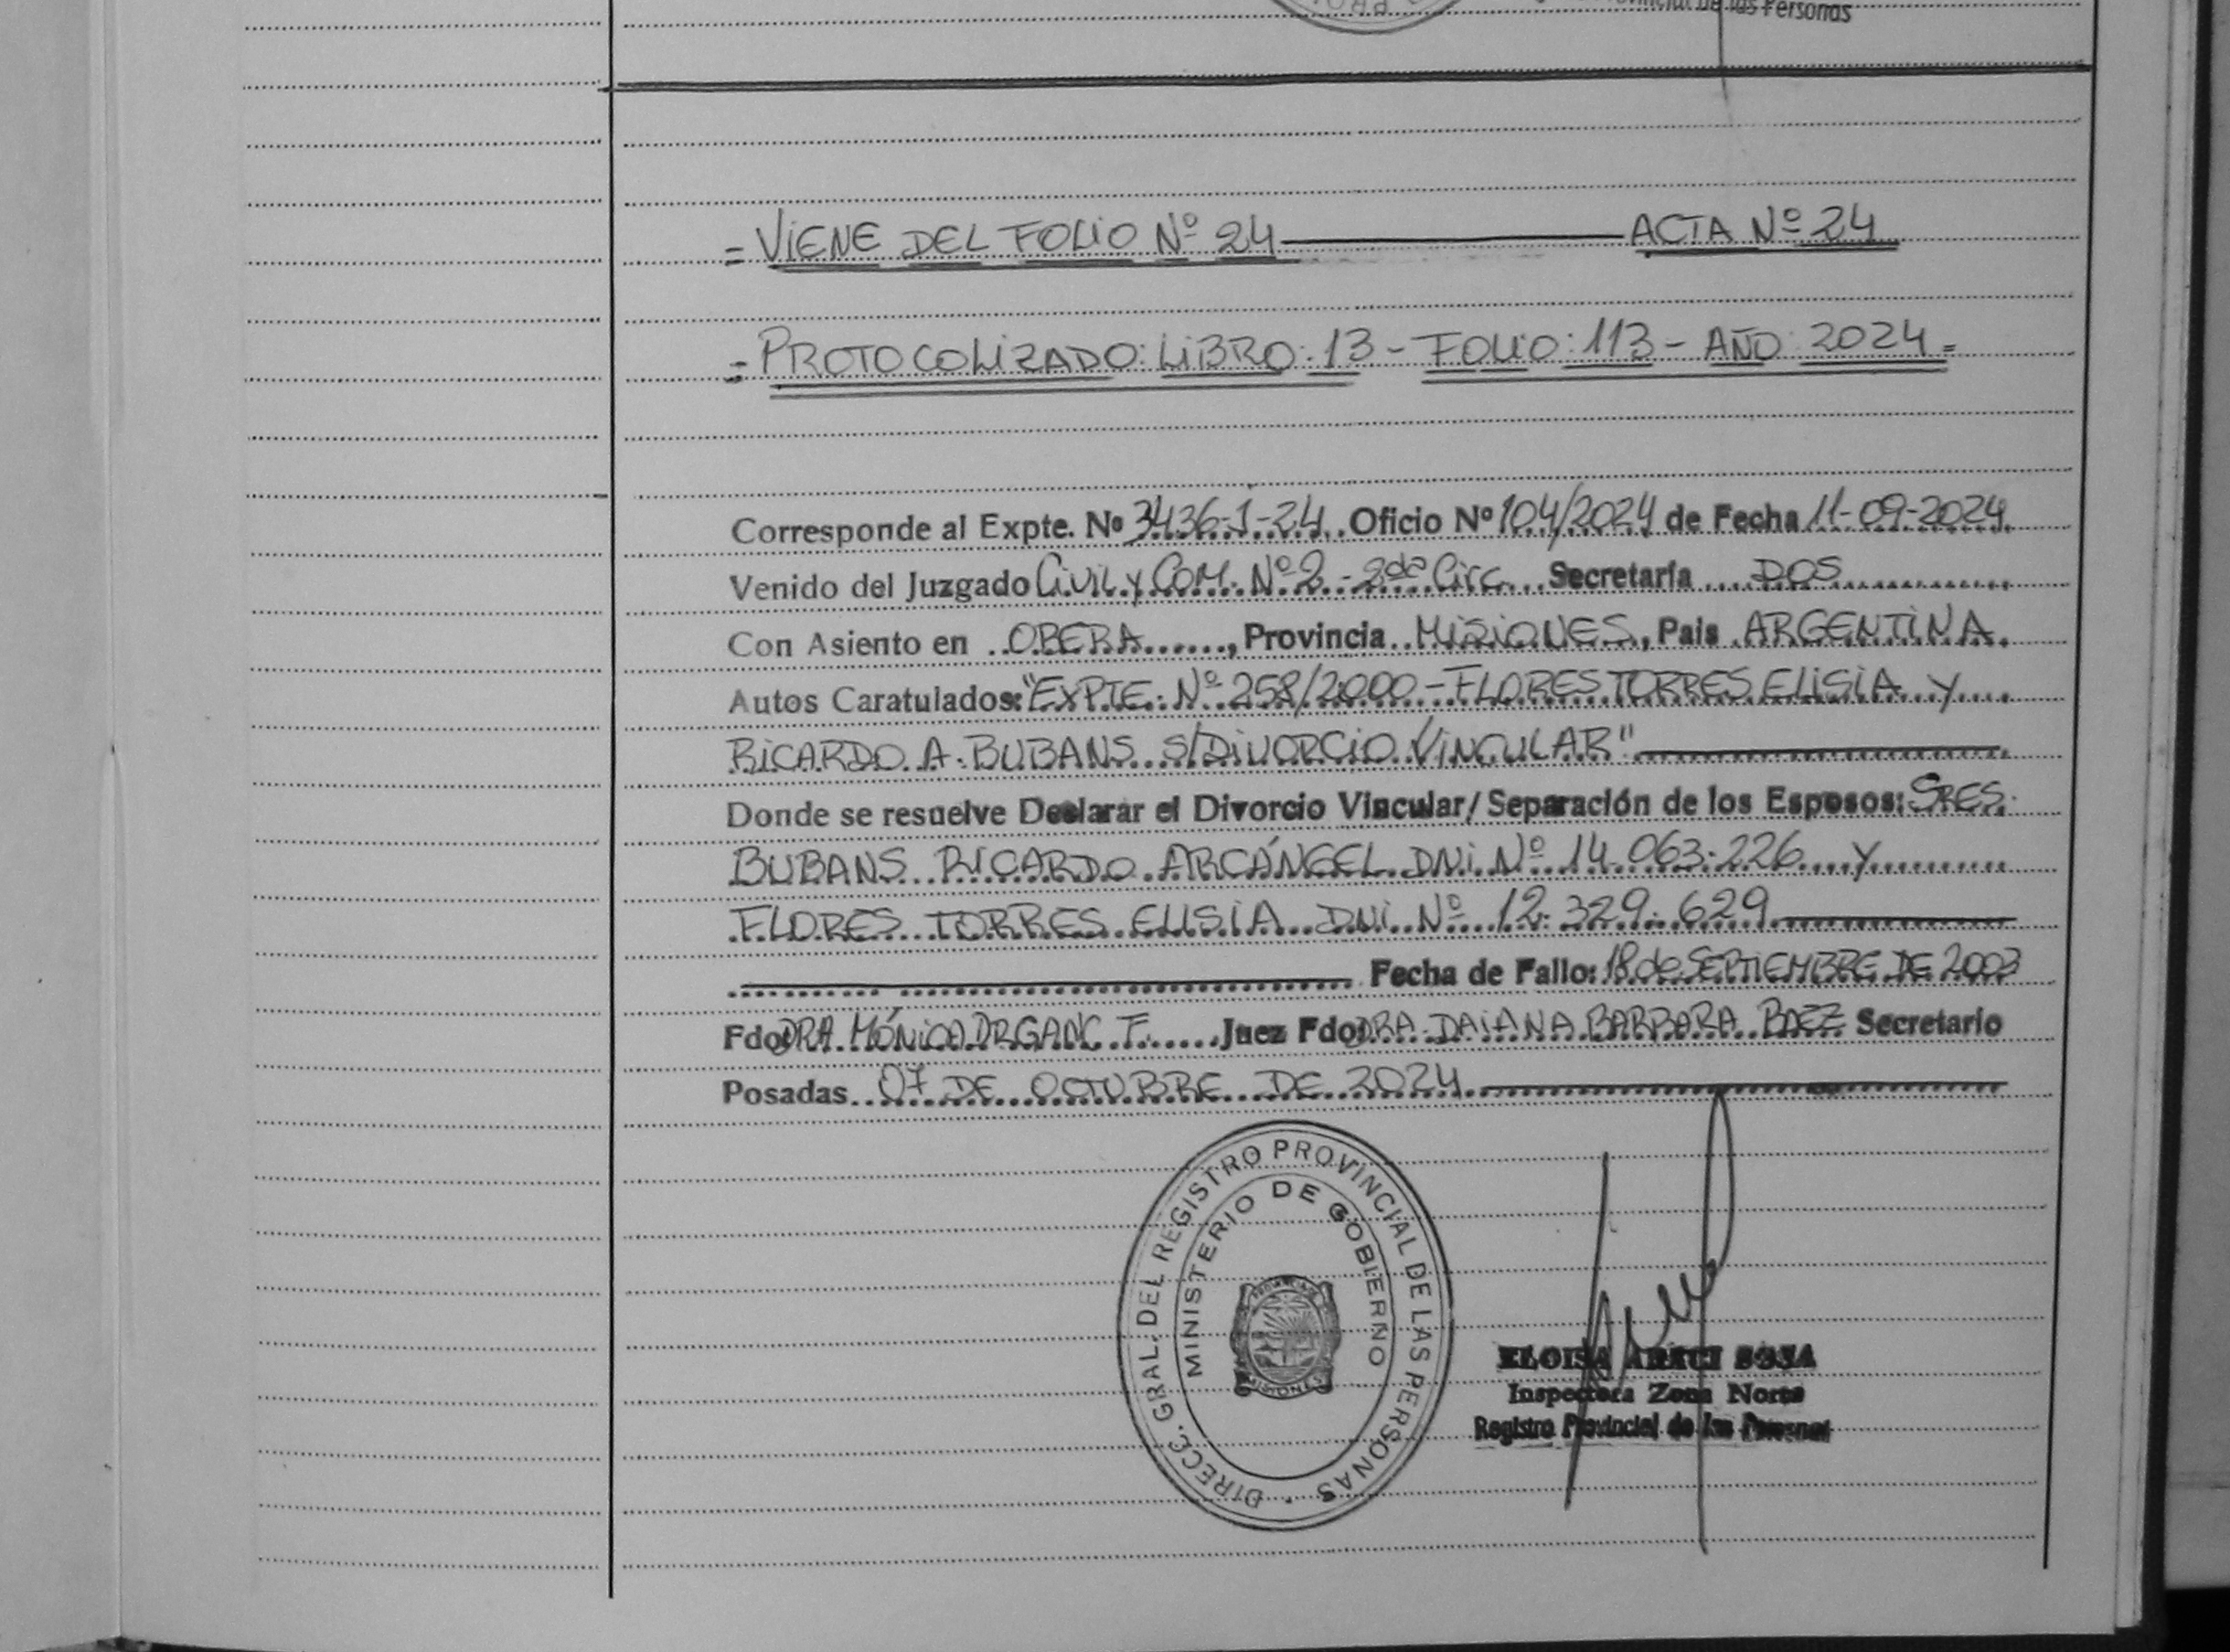 de las Personas
= VIENE DEL FOLIO Nº 24 ACTA Nº 24
= PROTOCOLIZADO: LIBRO: 13 - FOLIO: 113 - AÑO: 2024 =
Corresponde al Expte. Nº 3436-J-24 Oficio Nº 104/2024 de Fecha 11-09-2024
Venido del Juzgado Civil y Com. Nº 2 - 2da Circ. Secretaría DOS
Con Asiento en OBERA, Provincia MISIONES, País ARGENTINA.
Autos Caratulados: "EXPTE. Nº 258/2000 - FLORES TORRES ELISIA Y
RICARDO A. BUBANS S/DIVORCIO VINCULAR"
Donde se resuelve Declarar el Divorcio Vincular/Separación de los Esposos: SRES.
BUBANS RICARDO ARCÁNGEL DNI Nº 14.063.226 Y
FLORES TORRES ELISIA DNI Nº 12.329.629
Fecha de Fallo: 18 de SEPTIEMBRE DE 2003
Fdo DRA. MÓNICA DRGANC F. Juez Fdo: DRA. DAIANA BARBARA BAEZ Secretario
Posadas 07 DE OCTUBRE DE 2024
DIRECC. GRAL. DEL REGISTRO PROVINCIAL DE LAS PERSONAS
MINISTERIO DE GOBIERNO
MISIONES
ELOISA ARECI SOSA
Inspectora Zona Norte
Registro Provincial de las Personas